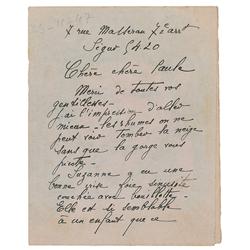 7 rue Masseran 7e arrt
Ségur 5420
Chère chère Paule
Merci de toutes vos
gentillesses –
j'ai l'impression d'aller
mieux – les rhumes on ne
peut voir tomber la neige
sans que la gorge vous
picote –
Suzanne a eu une
bonne crise foie
couchée avec bouillotte
Elle est si semblable
à un enfant que ce